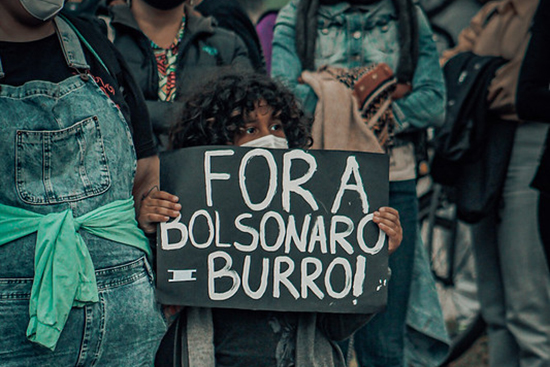 FORA
BOLSONARO
= BURRO!